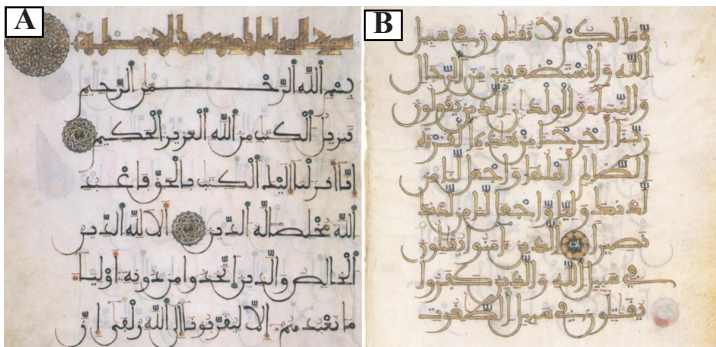 A
بسم الله الرحمن الرحيم
تنزيل الكتب من الله العزيز الحكيم
انا انزلنا اليك الكتب بالحق فاعبد
الله مخلصا له الدين الا لله الدين
الخالص والذين اتخذوا من دونه اوليا
ما نعبدهم الا ليقربونا الى الله زلفى ان
B
وما لكم لا تقتلون في سبيل
الله والمستضعفين من الرجال
والنسا والولدن الذين يقولون
ربنا اخرجنا من هذه القرية
الظالم اهلها واجعل لنا من
لدنك وليا واجعل لنا من لدنك
نصيرا الذين ءامنوا يقتلون
في سبيل الله والذين كفروا
يقتلون في سبيل الطغوت